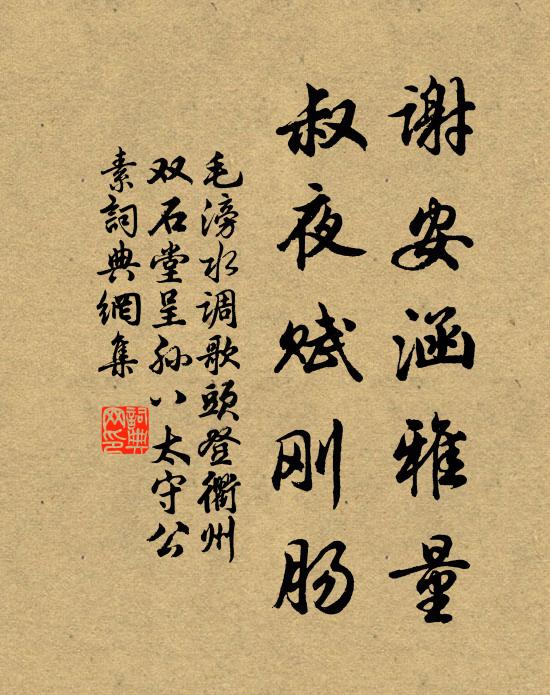 谢安涵雅量
叔夜赋刚肠
毛滂水调歌頭登衢州
双石堂呈孙八太守公
素詞典網集
詞典网印